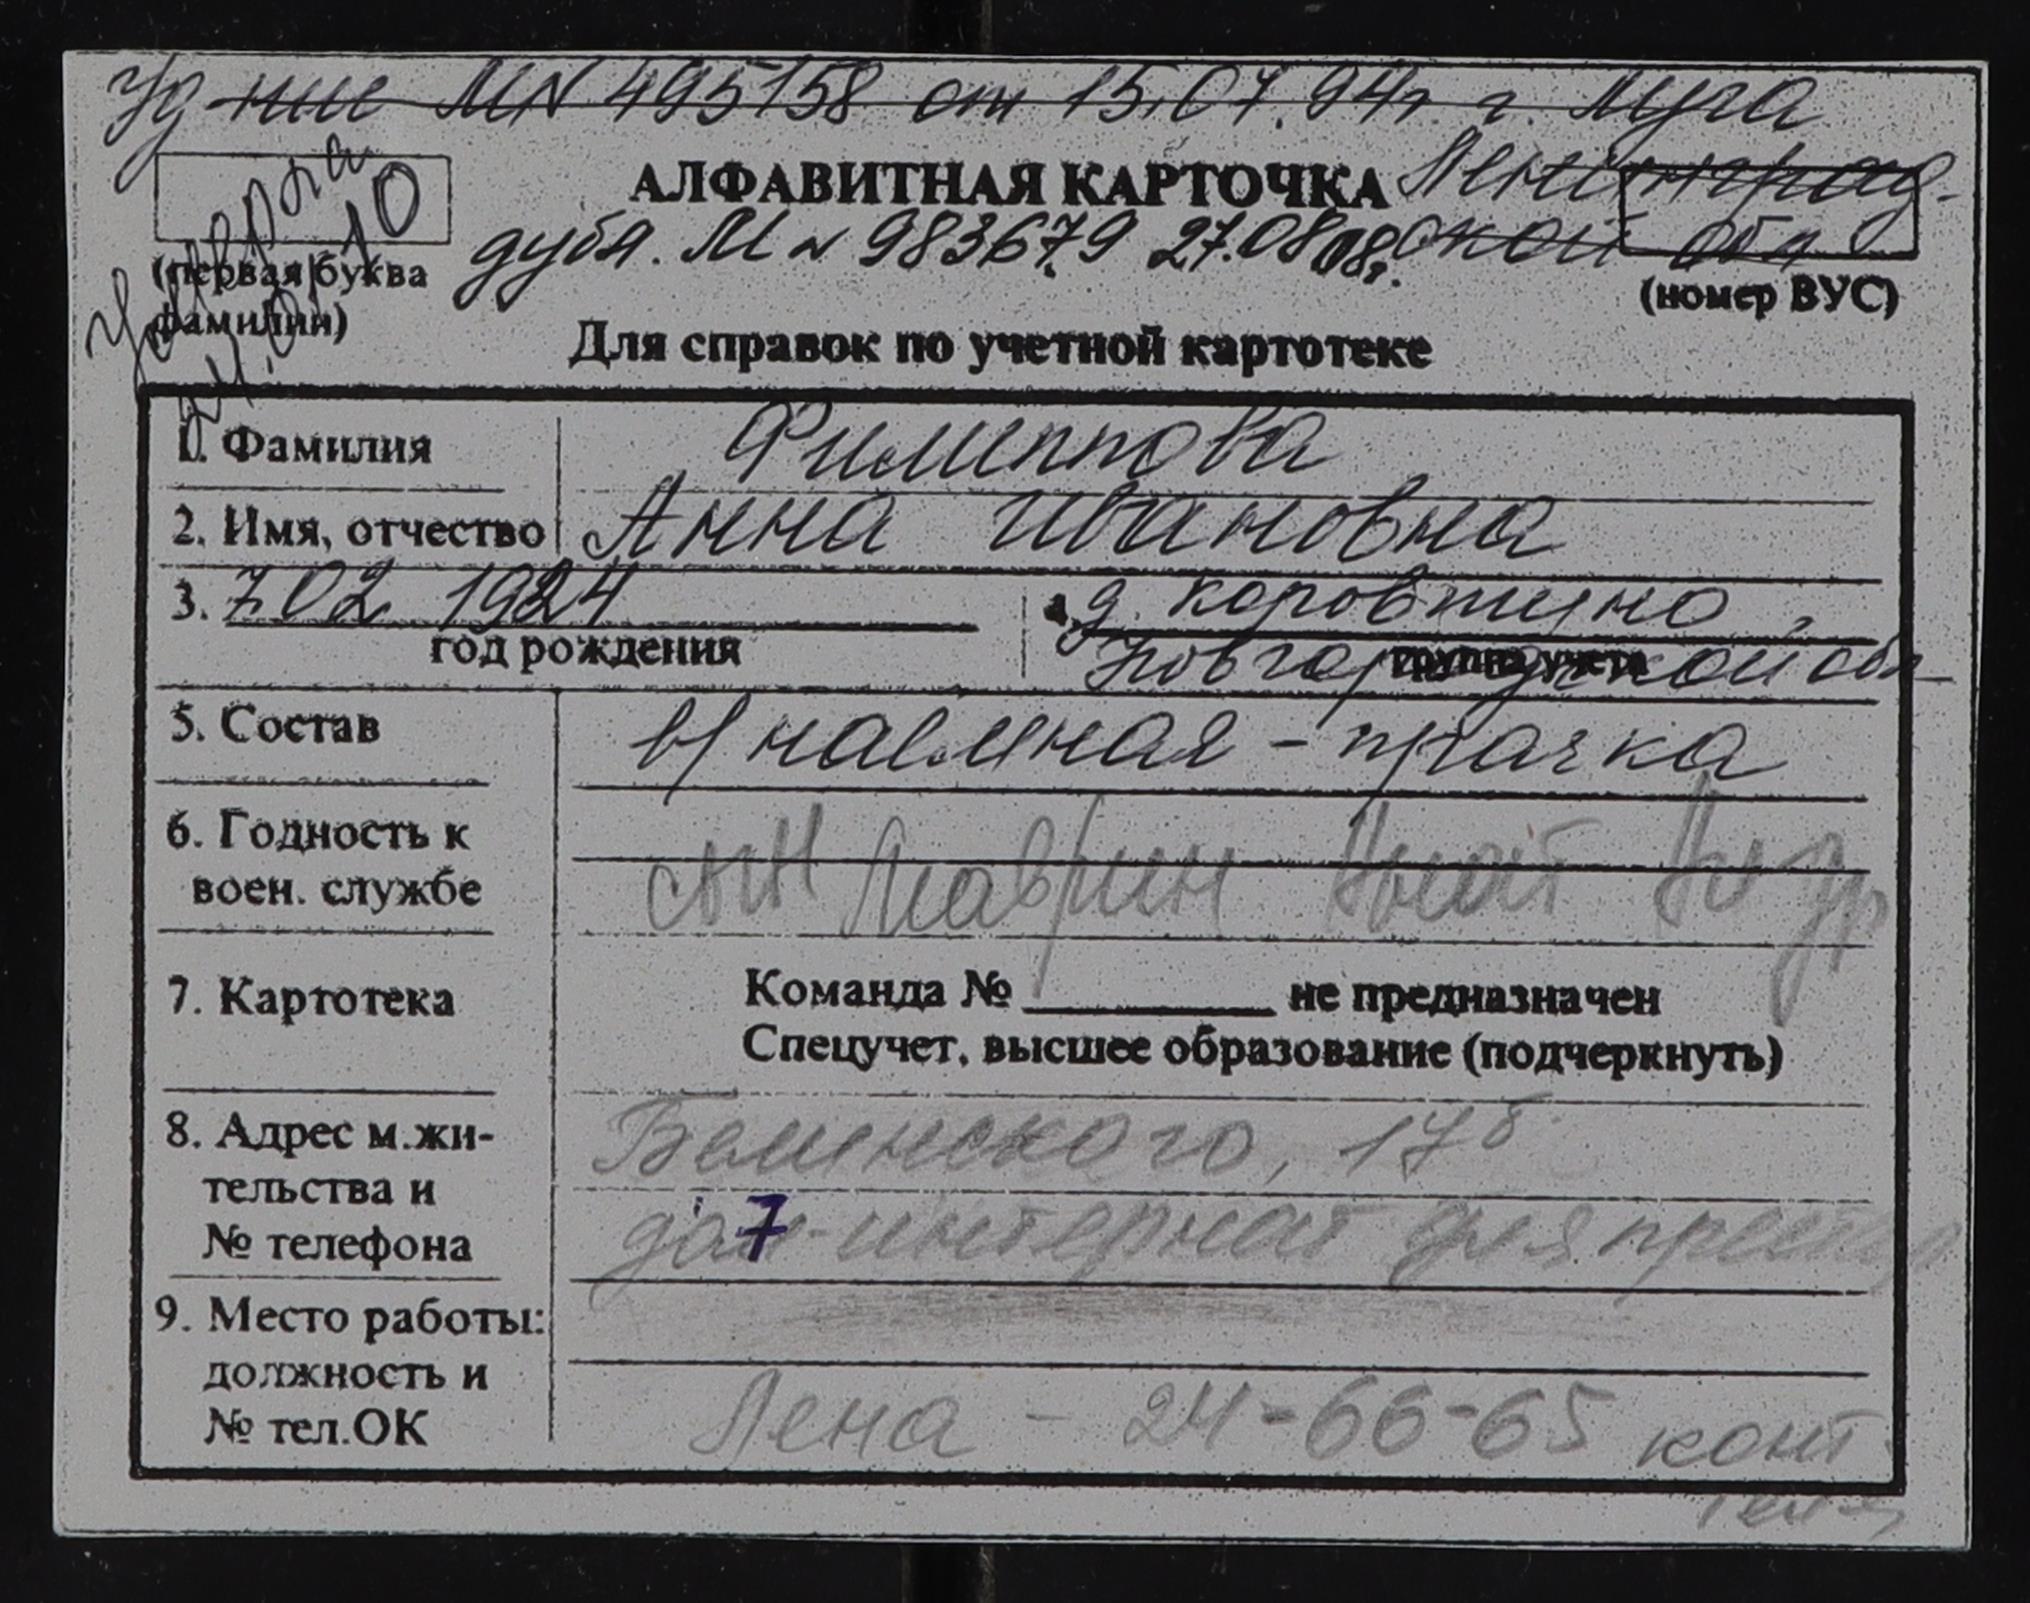 Уд-ние МN 495158 от 15.07.94г. г. Луга
Ленинград-
ской обл
АЛФАВИТНАЯ КАРТОЧКА
дубл. МN 983679 27.08.08г.
умерла
10
(первая буква
фамилии)
(номер ВУС)
Для справок по учетной картотеке
1. Фамилия Филиппова
2. Имя, отчество Анна Ивановна
3. 7.02 1924 4. д.
год рождения группа учета
Новгородской обл
5. Состав в/наемная - прачка
6. Годность к
воен. службе
7. Картотека Команда № не предназначен
Спецучет, высшее образование (подчеркнуть)
8. Адрес м.жи- Белинского, 17б
тельства и
№ телефона дом-интернат для
7
9. Место работы:
должность и
№ тел.ОК Лена - 24-66-65 конт